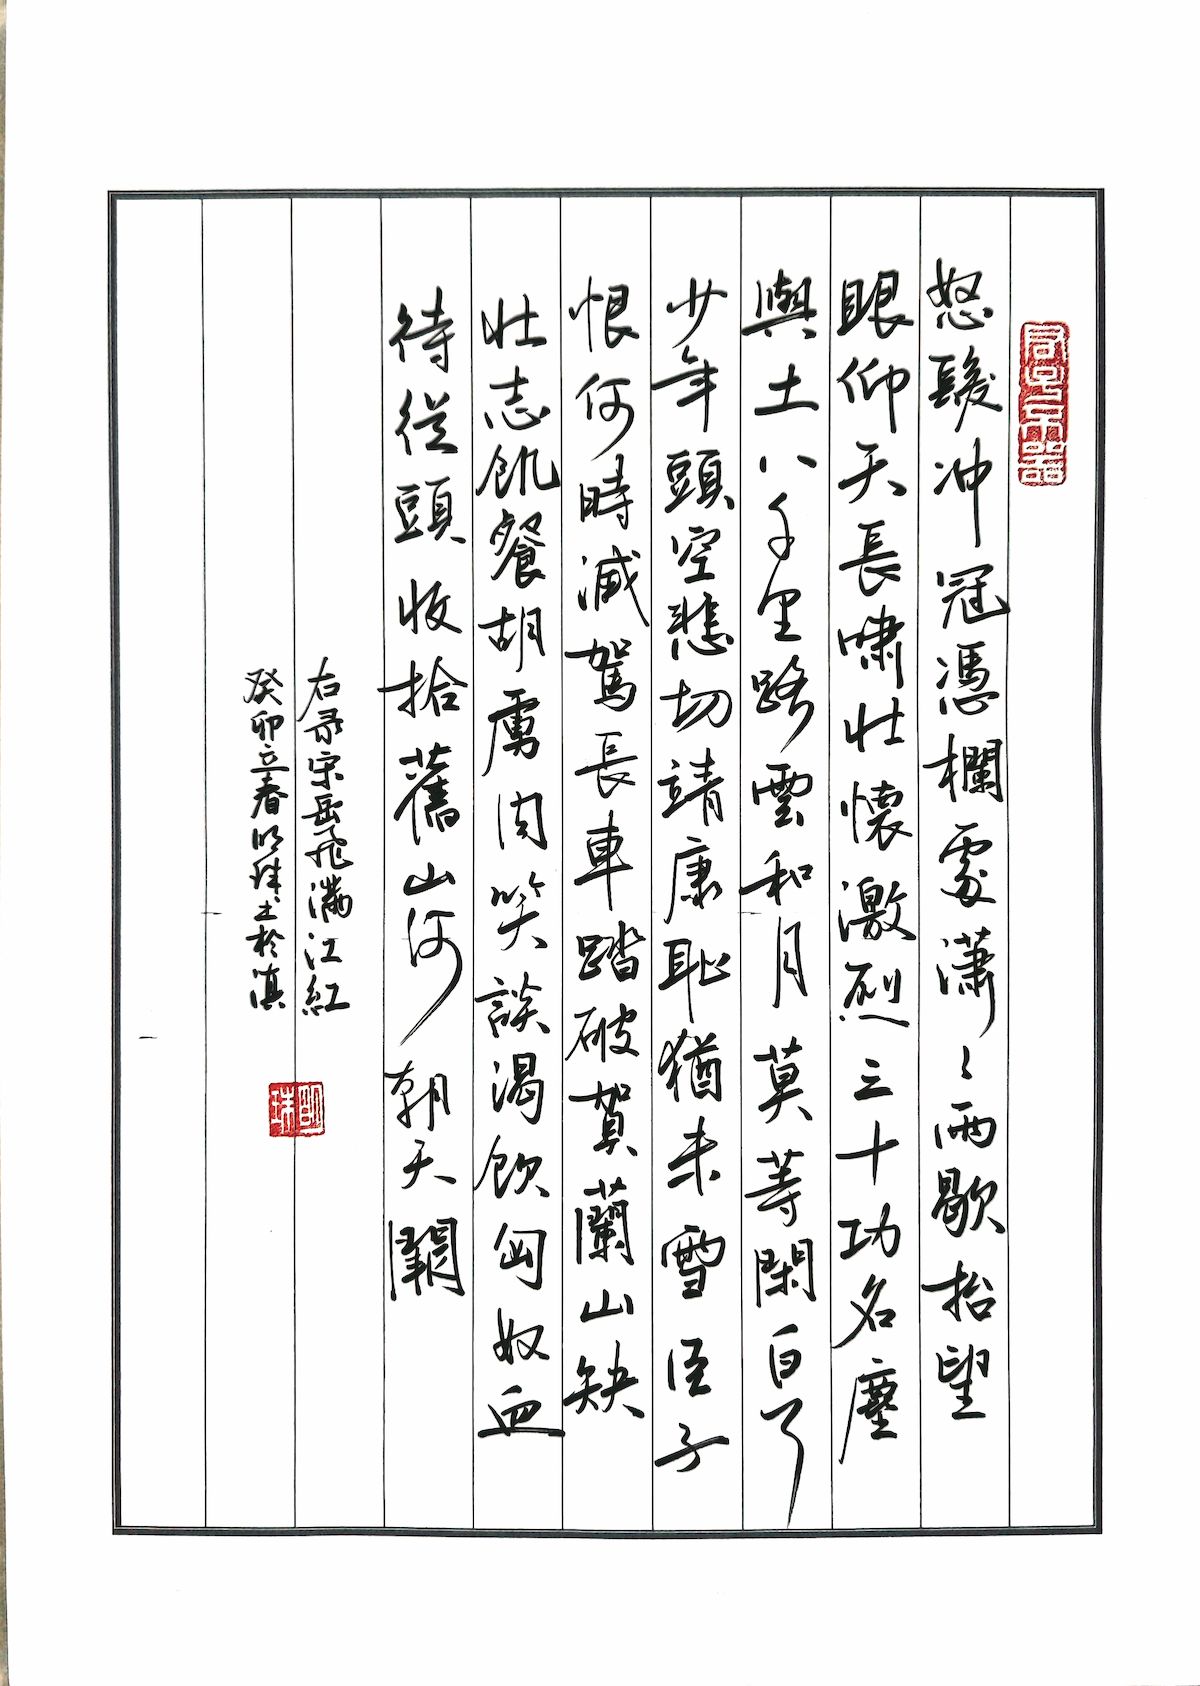 怒髮冲冠憑欄處潇〻雨歇抬望
眼仰天長啸壮懷激烈三十功名塵
與土八千里路雲和月莫等閑白了
少年頭空悲切靖康恥猶未雪臣子
恨何時滅駕長車踏破賀蘭山缺
壮志飢餐胡虜肉笑談渴飲匈奴血
待從頭收拾舊山河朝天闕
右录宋岳飛满江紅
癸卯立春明珠书於滇
明珠